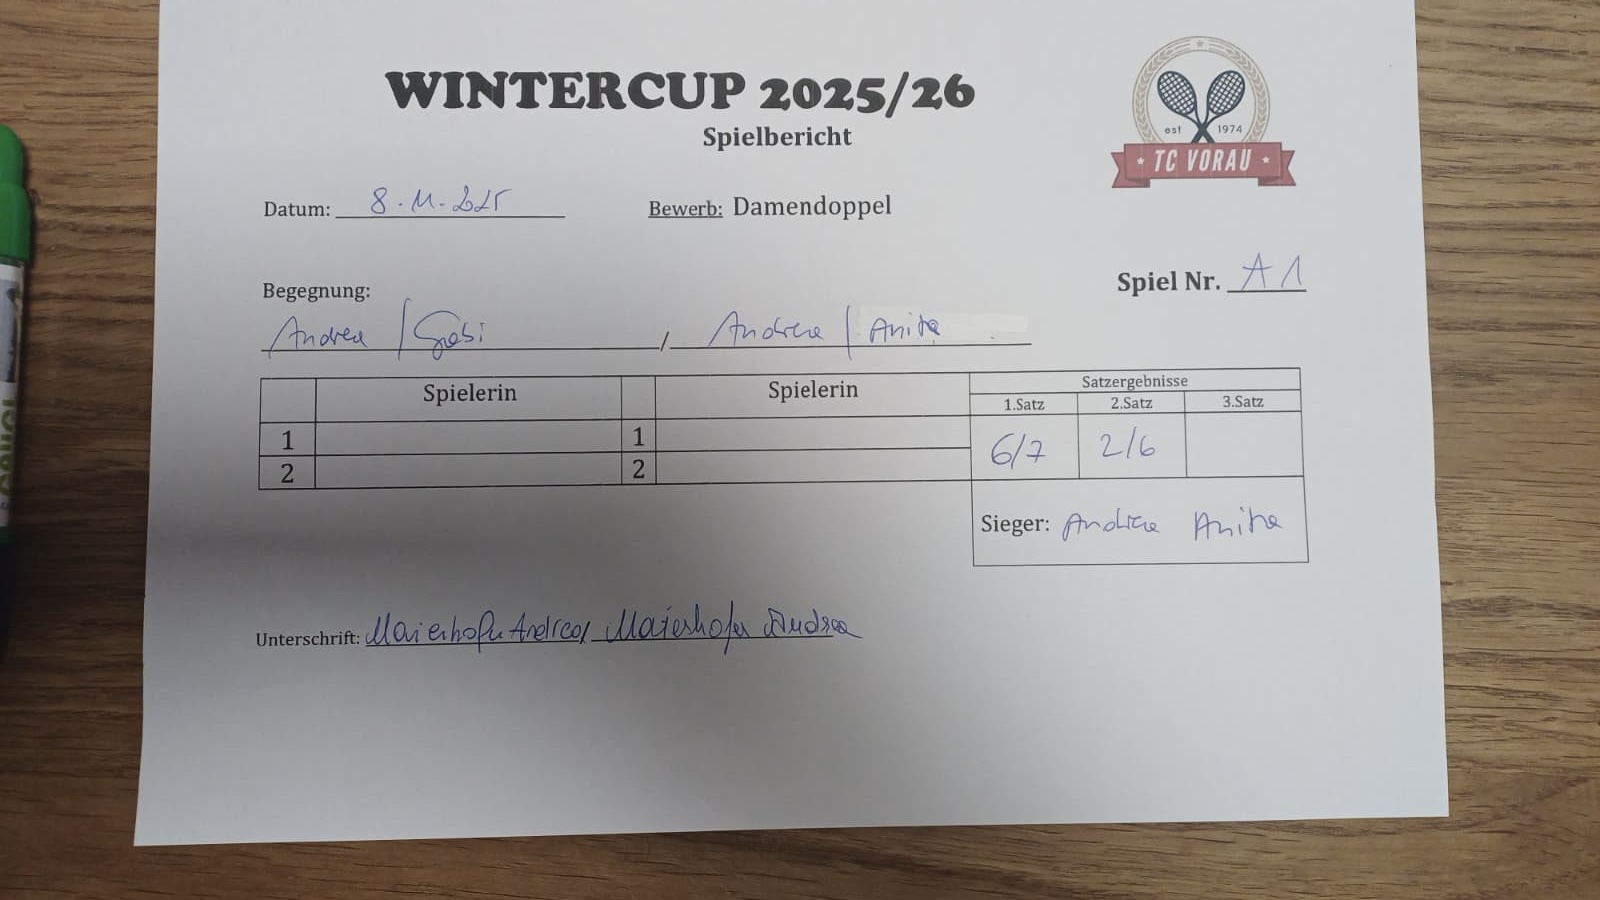 WINTERCUP 2025/26
Spielbericht
est 1974
TC VORAU
Datum: 8.11.2025
Bewerb: Damendoppel
Begegnung:
Spiel Nr. A1
Andrea / Gabi / Andrea / Anita
Spielerin Spielerin Satzergebnisse
1.Satz 2.Satz 3.Satz
1 1 6/7 2/6
2 2
Sieger: Andrea Anita
Unterschrift: Maierhofer Andrea, Maierhofer Andrea